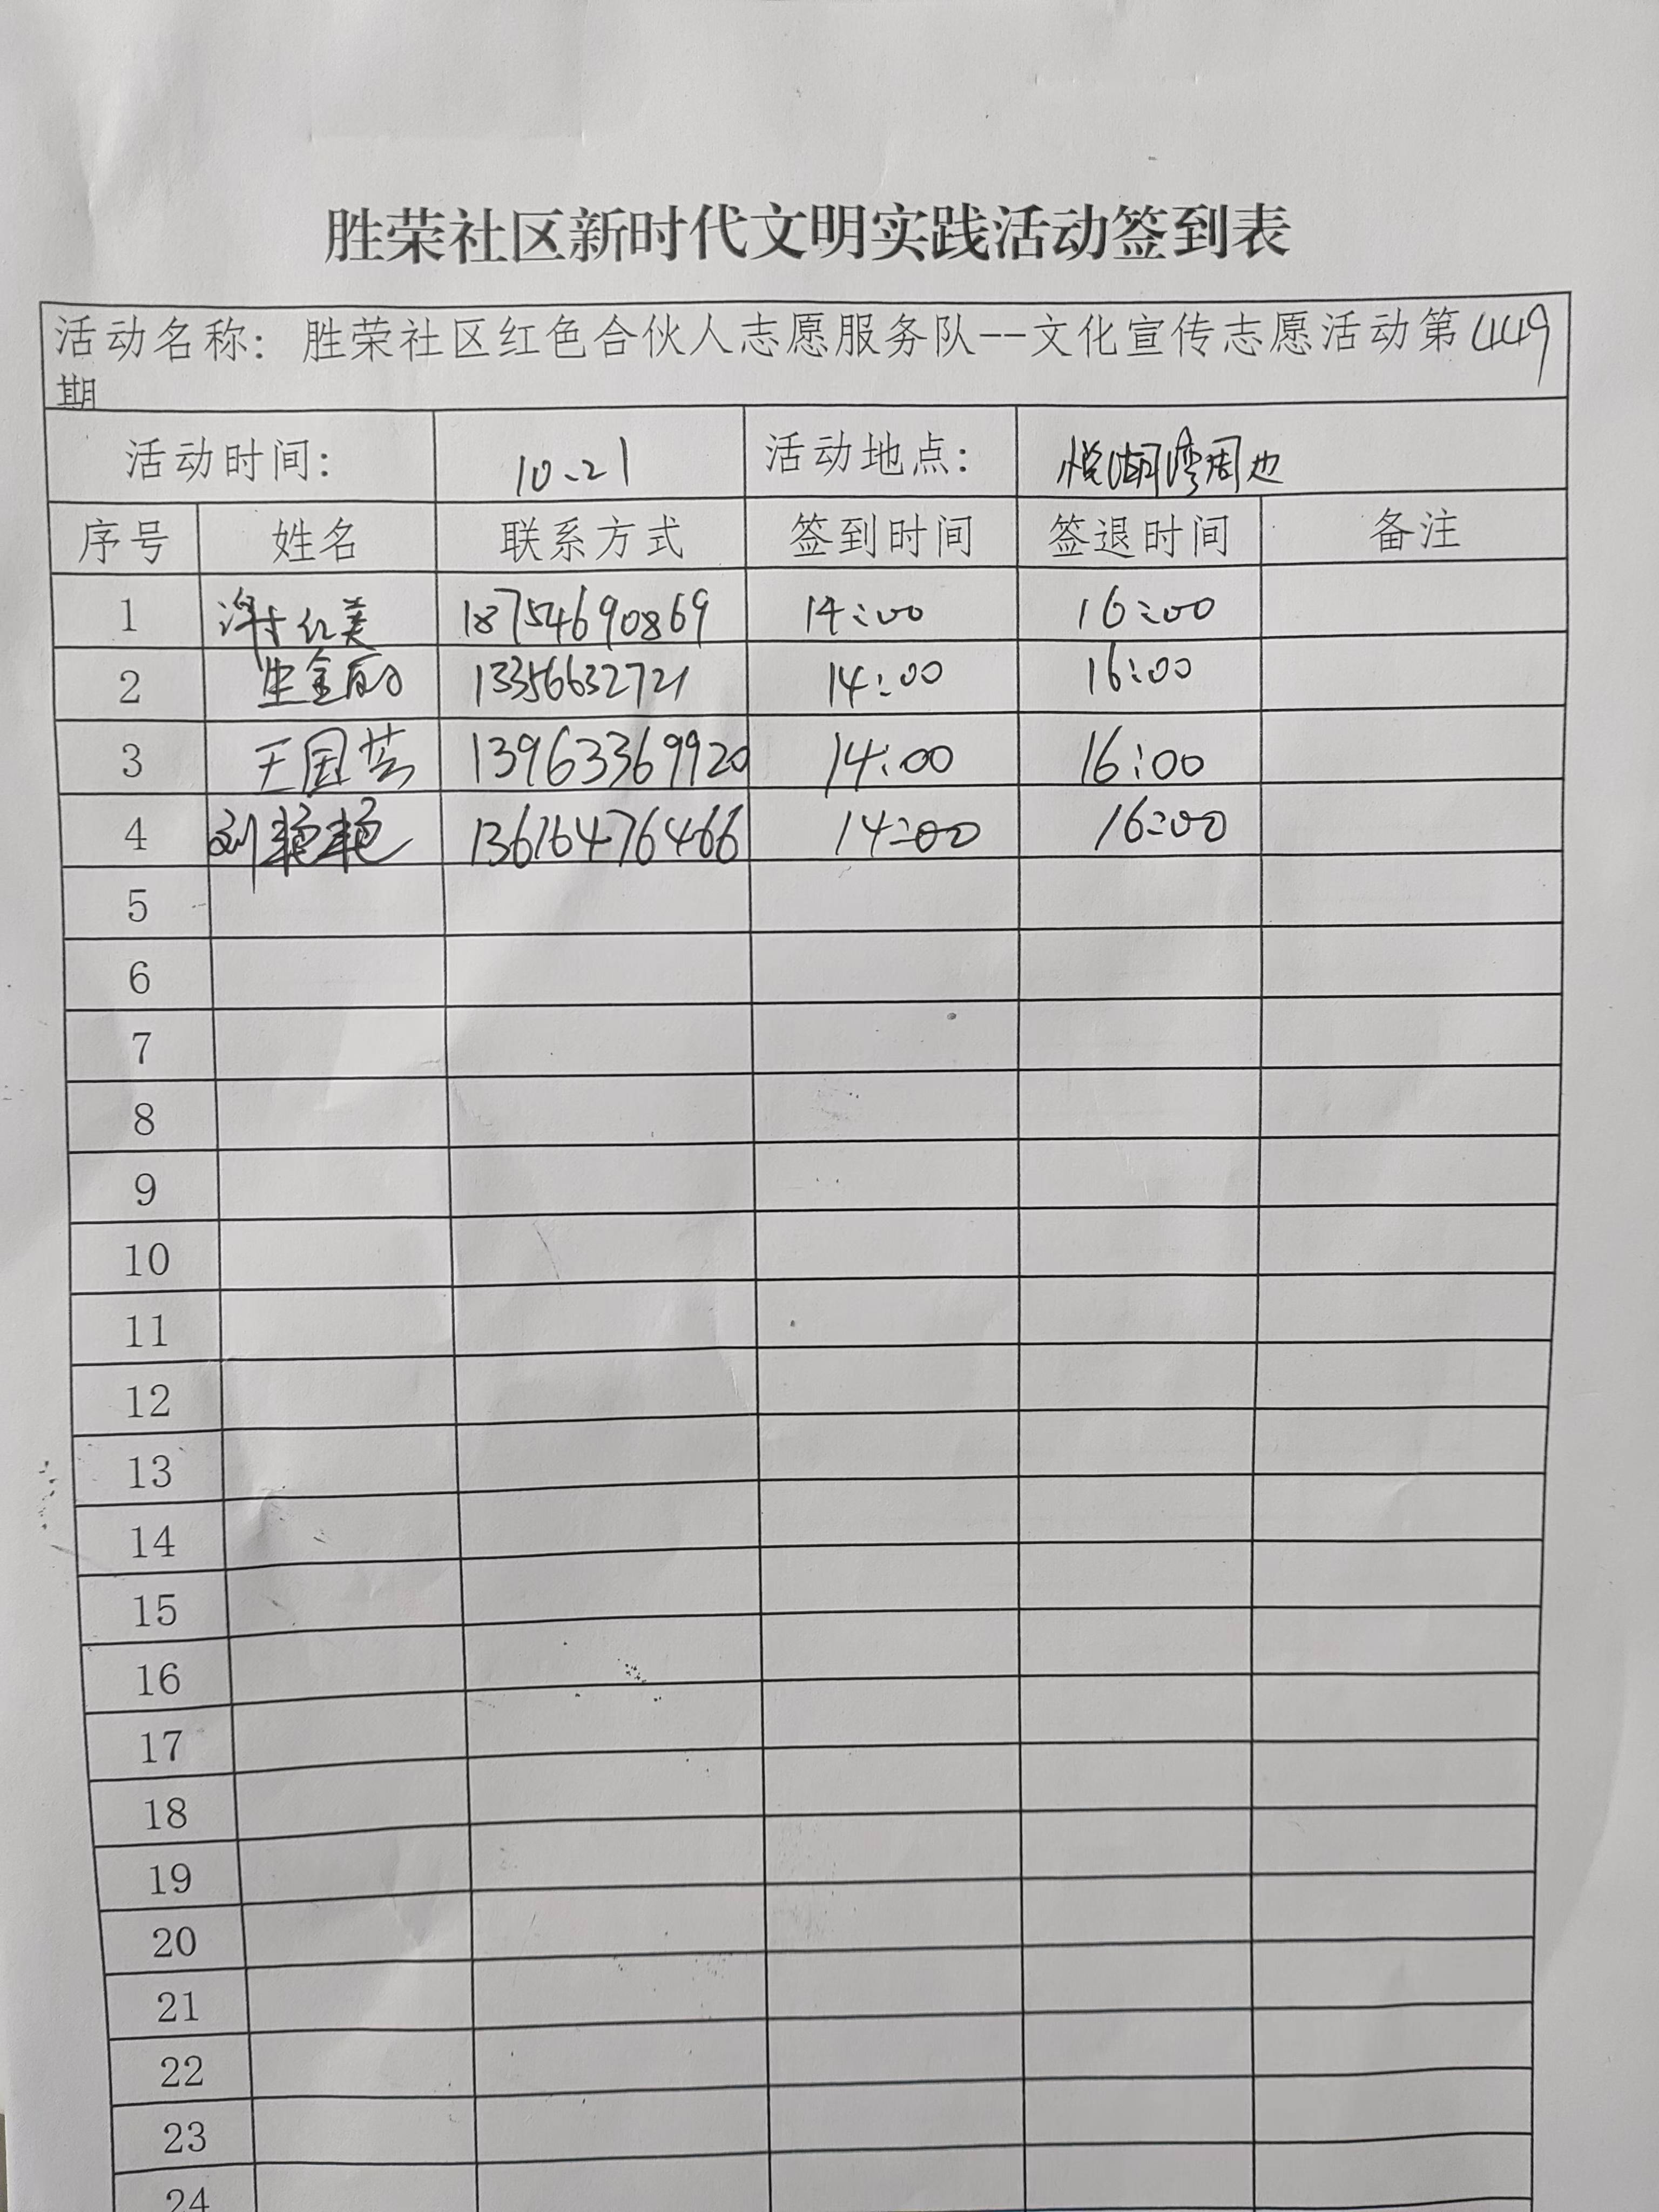 胜荣社区新时代文明实践活动签到表
活动名称：胜荣社区红色合伙人志愿服务队--文化宣传志愿活动第449
期
活动时间： 10.21 活动地点： 悦湖湾周边
序号 姓名 联系方式 签到时间 签退时间 备注
1 谢红美 18754690869 14:00 16:00
2 生金 13356632721 14:00 16:00
3 王国芸 13963369920 14:00 16:00
4 刘艳艳 13616476466 14:00 16:00
5
6
7
8
9
10
11
12
13
14
15
16
17
18
19
20
21
22
23
24